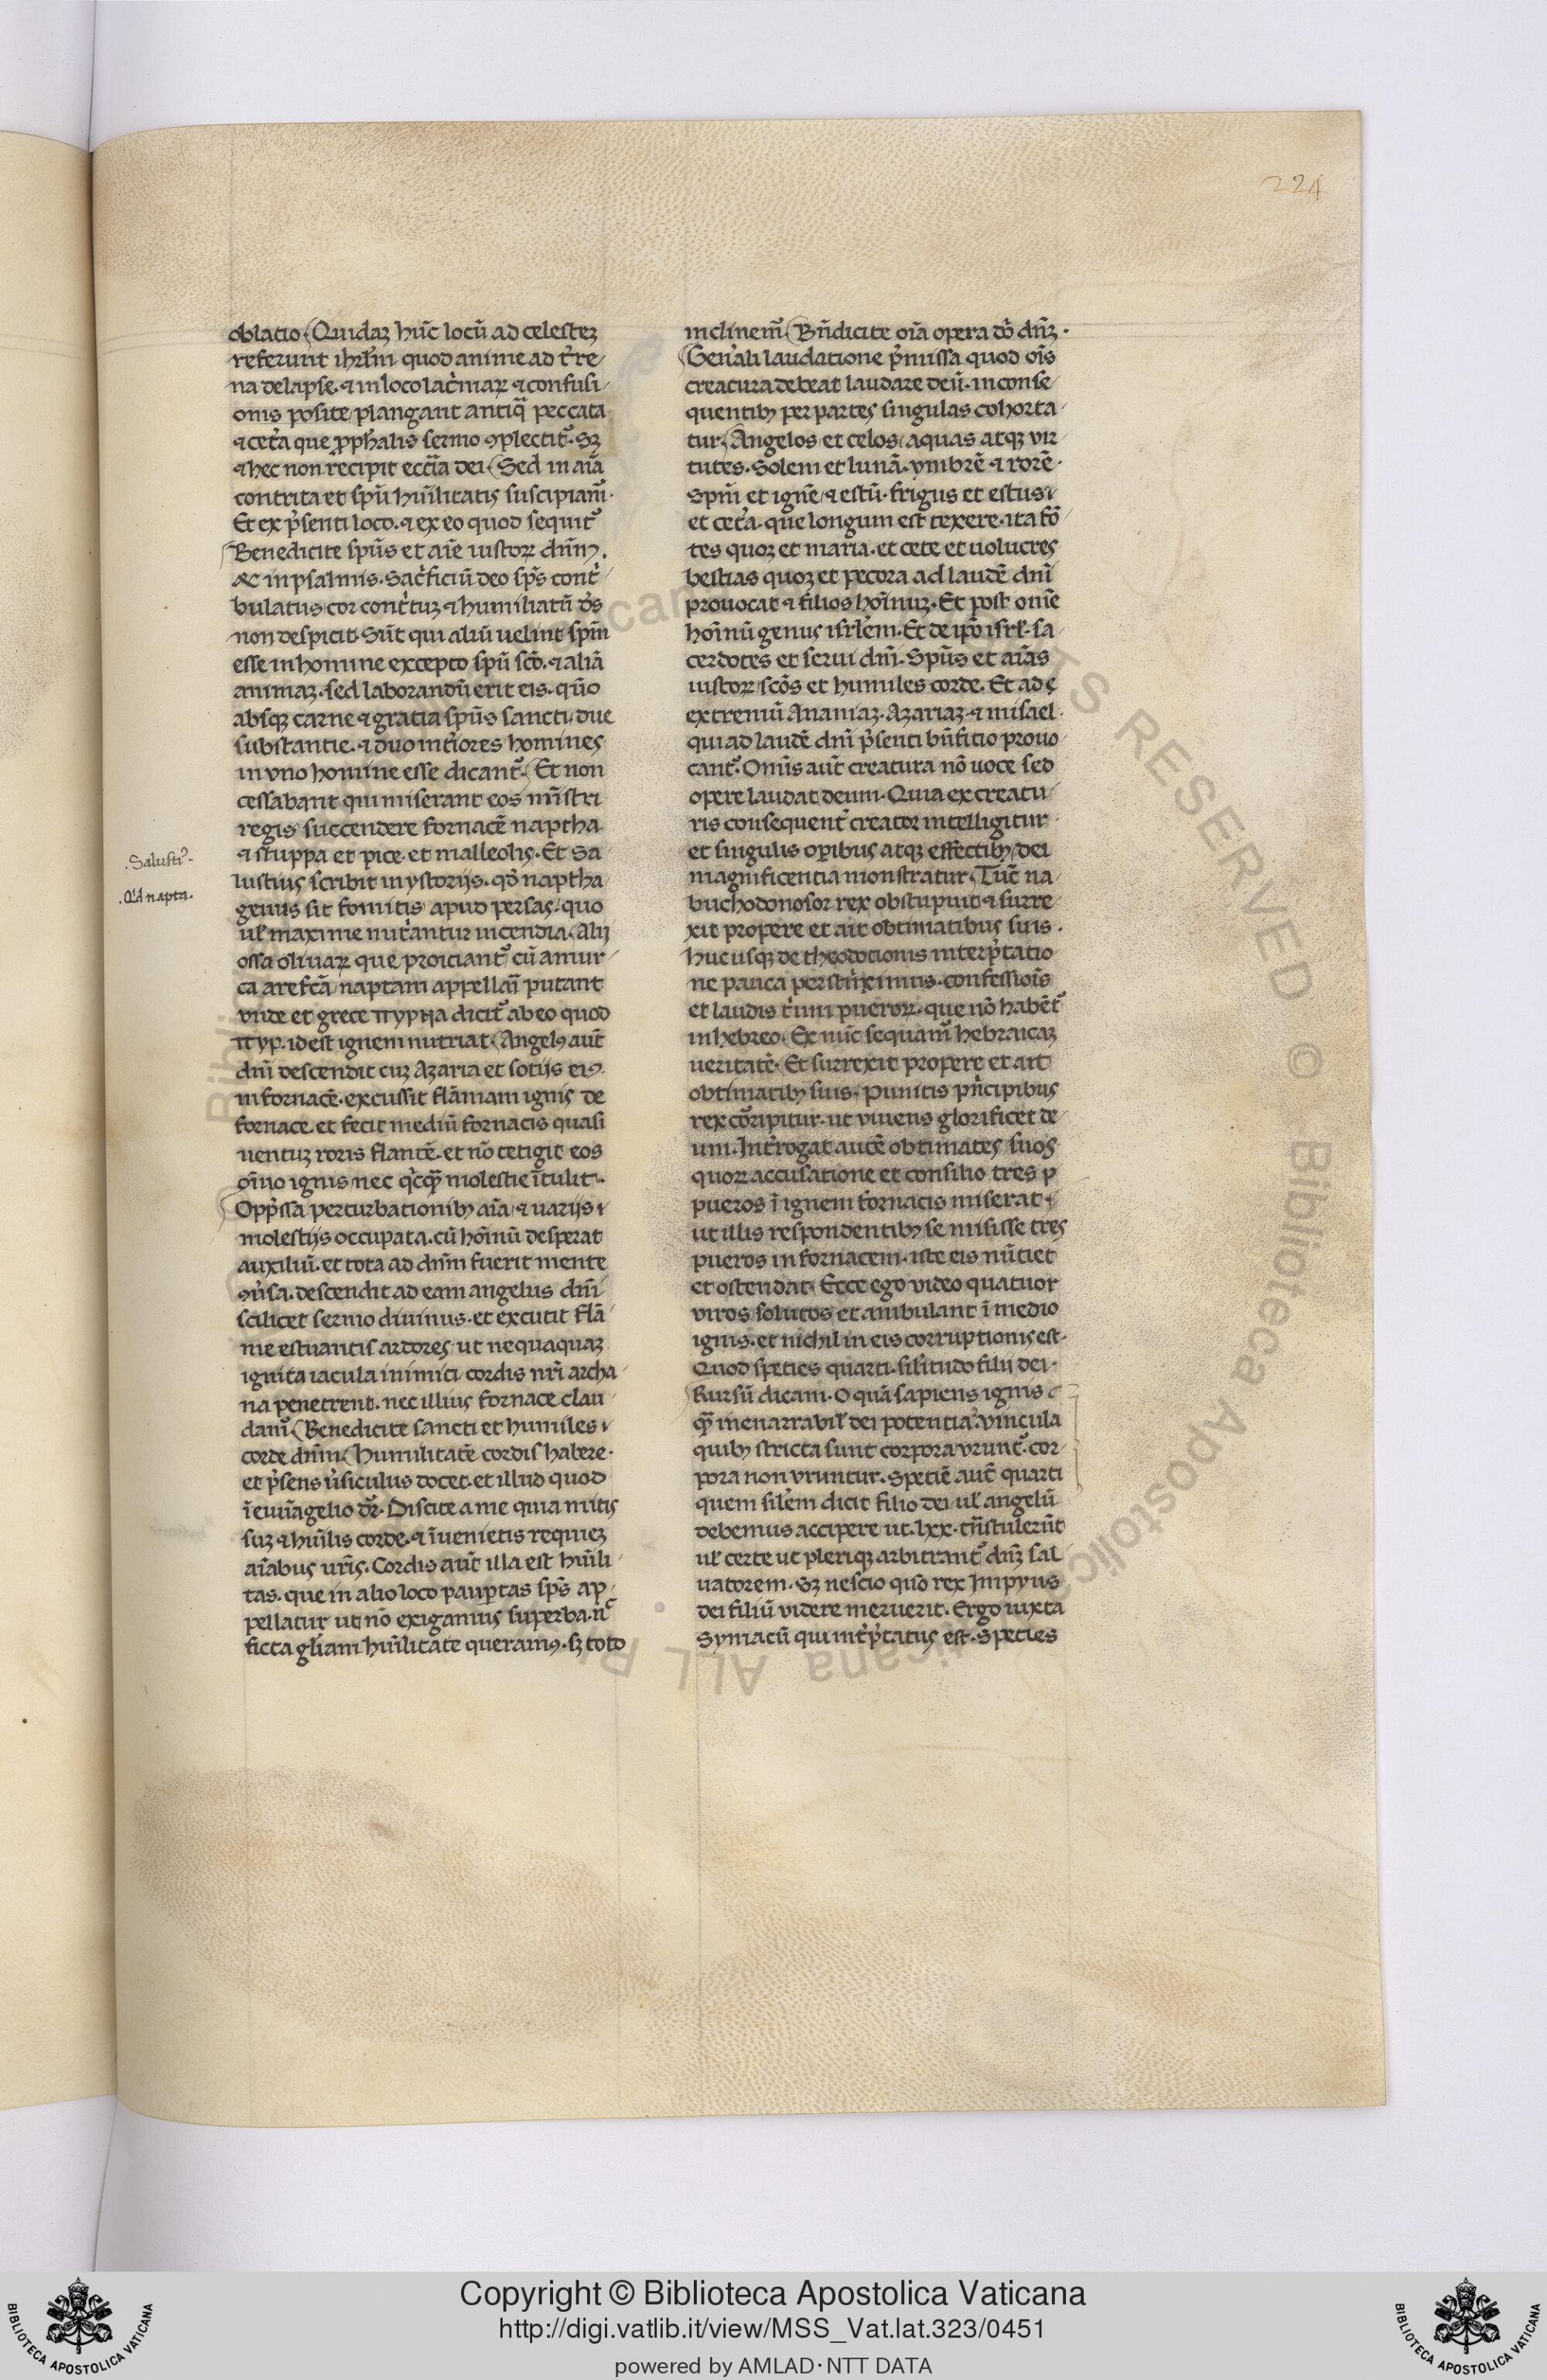 224
oblatio. Quidaz hūc locū ad celestez
referunt ihrlm̄ quod anime ad t̓re
na delapse. ⁊ in loco lac̓maꝝ ⁊ confusi
onis posite plangant antiq̄ peccata
⁊ cet̓a que ꝓphalis sermo ꝯplectit᷑. Sꝫ
⁊ hec non recipit eccl̄ia dei. Sed in aīa
contrita et spū hūilitatis suscipiam᷑.
Et ex p̓senti loco. ⁊ ex eo quod sequit᷑
Benedicite spūs et aīe iustoꝝ dn̄m.
Ac in psalmis. Sac̓ficiū deo sp̄s cont̓
bulatus cor cont̓tuz ⁊ humiliatū d̄s
non despicit. Sūt qui aliū uelint spm̄
esse in homine excepto spū sc̄o. ⁊ aliā
animaz. sed laborandū erit eis. quō
absqꝫ carne ⁊ gratia spūs sancti due
substantie. ⁊ duo int̓iores homines
in vno homine esse dicant᷑. Et non
cessabant qui miserant eos mīstri
regis succendere fornacē naptha
⁊ stuppa et pice et malleolis. Et Sa
.Salusti᷒.
lustius scribit in ystorijs. qd̄ naptha
.Qd̓ napta.
genus sit fomitis apud persas. quo
uł maxime nut̓antur incendia. Alij
ossa oliuaꝝ que proiciant᷑ cū amur
ca arefcā naptam appellari putant
vnde et grece πypηa dicit᷑ ab eo quod
πyp. id est ignem nutriat. Angelꝰ aūt
dnī descendit cuz Azaria et sotijs eiꝰ
in fornacē. excussit flāmam ignis de
fornace. et fecit mediū fornacis quasi
uentuz roris flantē. et nō tetigit eos
oīno ignis nec q̓cq̄ molestie ītulit.
Opp̓ssa perturbationibꝫ aīa ⁊ uarijs
molestijs occupata. cū hoīnū desperat
auxiliū. et tota ad dn̄m fuerit mente
ꝯu̓sa. descendit ad eam angelus dnī
scilicet sermo diuinus. et excutit flā
me estuantis ardores ut nequaquaz
ignita iacula inimici cordis nr̄i archa
na penetrent. nec illius fornace clau
dam᷑. Benedicite sancti et humiles
corde dn̄m. Humilitatē cordis habere.
et p̓sens u̓siculus docet. et illud quod
ī euāgelio dr̄. Discite a me quia mitis
suz ⁊ hūilis corde. ⁊ īuenietis requiez
aīabus ur̄is. Cordis aūt illa est hūili
tas. que in alio loco paup̱tas sp̄s ap
pellatur ut nō exigamus superba. nc̄
ficta gl̄iam hūilitate queramꝰ. sꝫ toto
inclinem᷑. Bn̄dicite oīa opera dō dn̄z.
Gen̓ali laudatione p̓missa quod oīs
creatura debeat laudare deū. in conse
quentibꝫ per partes singulas cohorta
tur. Angelos et celos aquas atqꝫ vir
tutes. Solem et lunā. ymbrē ⁊ rorē.
Spm̄ et ignē ⁊ estū. frigus et estus
et cet̓a. que longum est texere. ita fō
tes quoꝫ et maria. et cete et uolucres
bestias quoꝫ et pecora ad laudē dnī
prouocat ⁊ filios hoīnuz. Et post onīe
hoīnū genus isrl̓em. Et de ip̄o isrł. sa
cerdotes et serui dnī. Spūs et aīas
iustoꝝ scōs et humiles corde. Et ad
extremū Ananiaz. Azariaz. ⁊ misael
qui ad laudē dnī p̓senti bn̄fitio prouo
cant᷑. Omīs aūt creatura nō uoce sed
opere laudat deum. Quia ex creatu
ris consequent̓ creator intelligitur
et singulis oꝑibus atqꝫ effectibꝫ dei
magnificentia monstratur. Tūc na
buchodonosor rex obstupuit ⁊ surre
xit propere et ait obtimatibus suis.
Huc usqꝫ de theodotionis interp̓tatio
ne pauca perstrinximus. confessiōis
et laudis t̓um pueroꝝ. que nō habēt᷑
in hebreo. Ex nūc sequam᷑ hebraicaz
ueritatē. Et surrexit propere et ait
obtimatibꝫ suis. Punitis pn̓cipibus
rex cōripitur. ut viuens glorificet de
um. Int̓rogat autē obtimates suos
quoꝝ accusatione et consilio tres p
pueros ī ignem fornacis miserat
ut illis respondentibꝫ se misisse tres
pueros in fornacem. iste eis nūtiet
et ostendat. Ecce ego video quatuor
viros solutos et ambulant ī medio
ignis. et nichil in eis corruptionis est.
Quod speties quarti. sil̓itudo filij dei.
Rursū dicam. O quā sapiens ignis
q̄ inenarrabił dei potentia. vincula
quibꝫ stricta sunt corpora vrunt᷑. cor
pora non vruntur. Spetiē aūt quarti
quem sil̓em dicit filio dei uł angelū
debemus accipere ut. lxx. tn̄stulerūt
uł certe ut pleriqꝫ arbitrant᷑ dn̄z sal
uatorem. Sꝫ nescio quō rex Impyus
dei filiū videre meruerit. Ergo iuxta
Symacū qui int̓p̓tatus est. Species
Copyright © Biblioteca Apostolica Vaticana
http://digi.vatlib.it/view/MSS_Vat.lat.323/0451
powered by AMLAD·NTT DATA
BIBLIOTECA APOSTOLICA VATICANA
BIBLIOTECA APOSTOLICA VATICANA